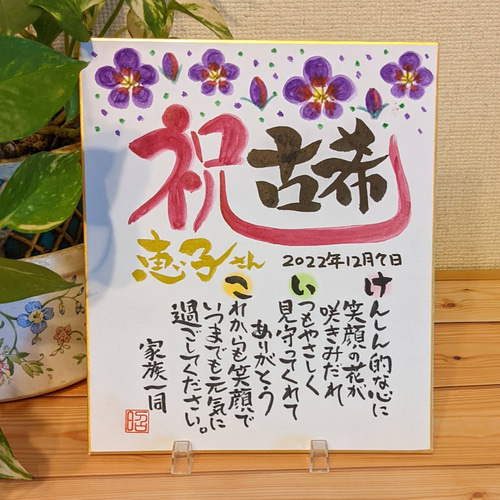 祝 古希
恵子さん
2022年12月7日
けんしん的な心に
笑顔の花が
咲きみだれ
いつもやさしく
見守ってくれて
ありがとう
これからも笑顔で
いつまでも元気に
過ごしてください。
家族一同
昭